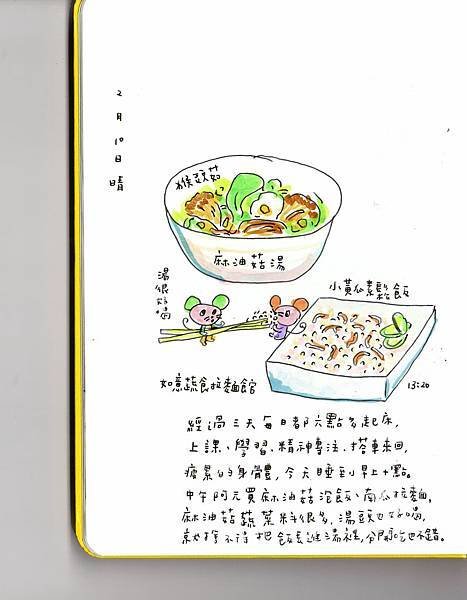 2月10日晴
猴頭菇
麻油菇湯
湯很好喝
小黃瓜素鬆飯
如意蔬食拉麵館
13:20
經過三天每日都六點多起床,
上課、學習、精神專注、搭車來回,
疲累的身體,今天睡到早上十點。
中午阿元買麻油菇泡飯、南瓜拉麵,
麻油菇蔬菜料很多,湯頭也好喝,
就捨不得把飯丟進湯裡,分開吃也不錯。